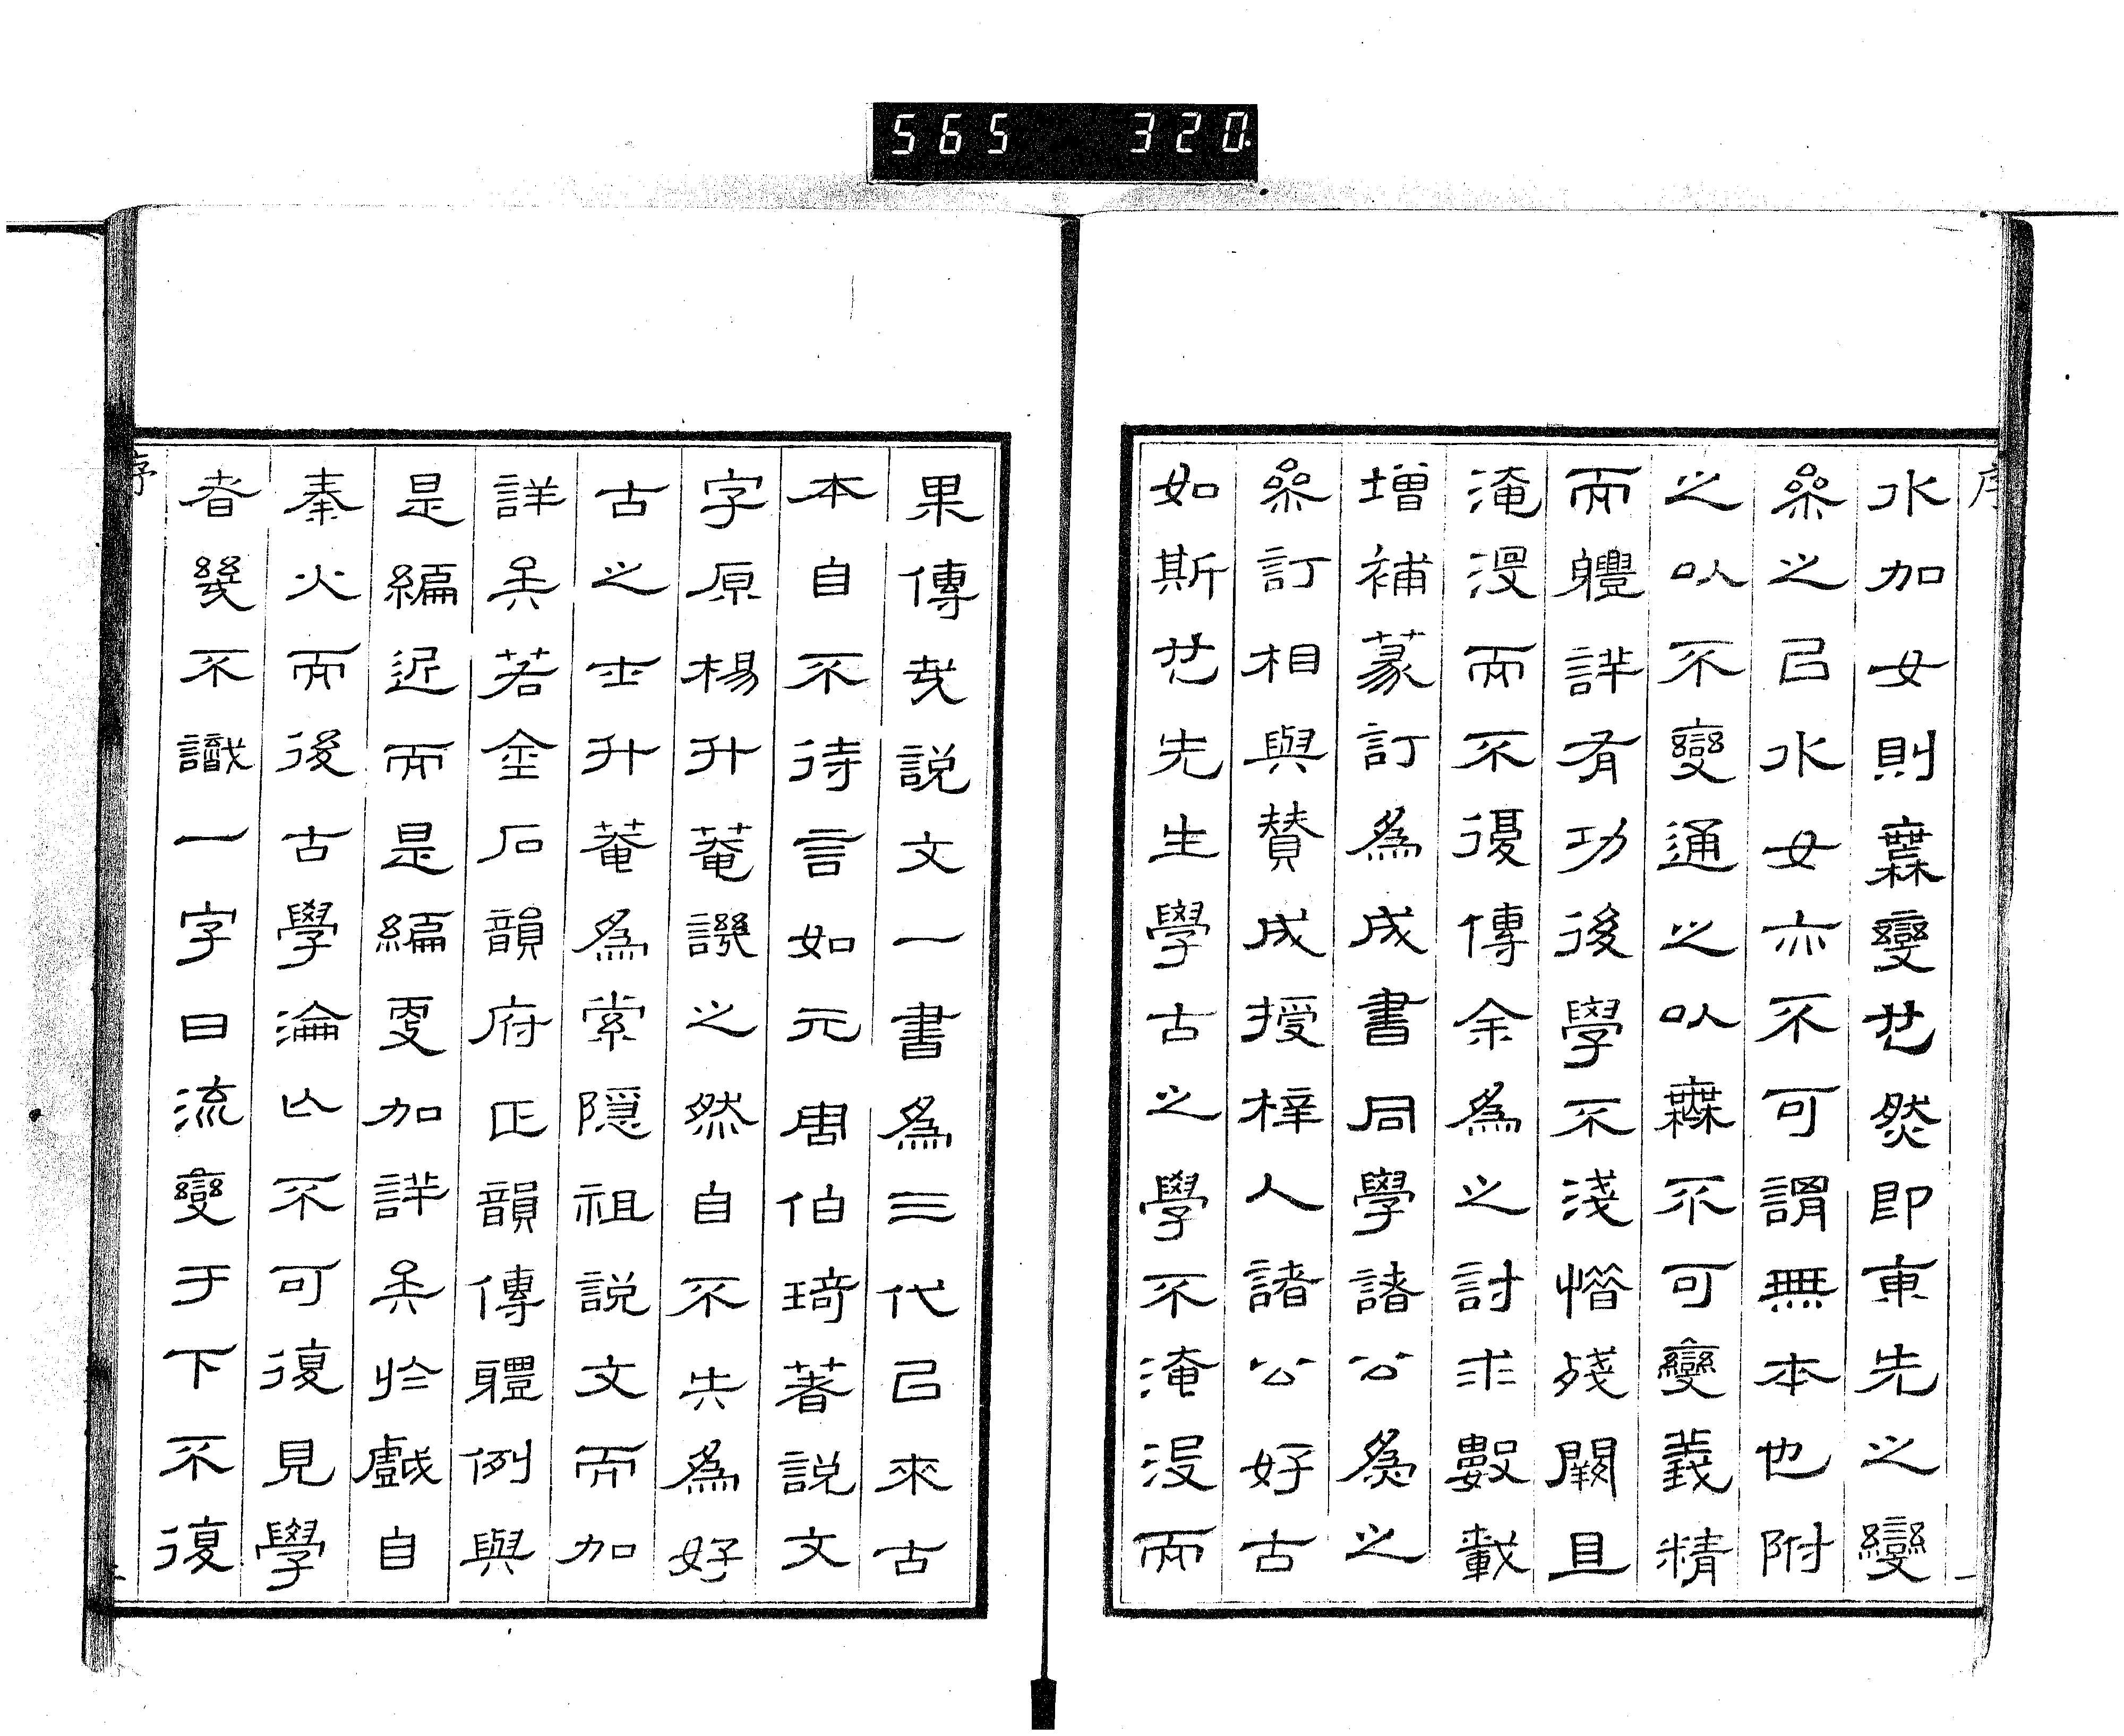 565 320.
序 一
水加女則橆變然即東先之變
參之已水女亦不可謂無本也附
之以不變通之以橆不可變義精
而體詳有功後學不淺惜殘闕且
淹沒而不復傳余爲之討求數載
增補篆訂爲成書同學諸公爲之
參訂相與贊成授梓人諸公好古
如斯先生學古之學不淹沒而
果傳哉說文一書爲三代已來古
本自不待言如元周伯琦著說文
字原楊升菴譏之然自不失爲好
古之士升菴爲索隱祖說文而加
詳矣若金石韻府正韻傳體例與
是編近而是編更加詳矣於戲自
秦火而後古學淪亡不可復見學
者幾不識一字日流變于下不復
序